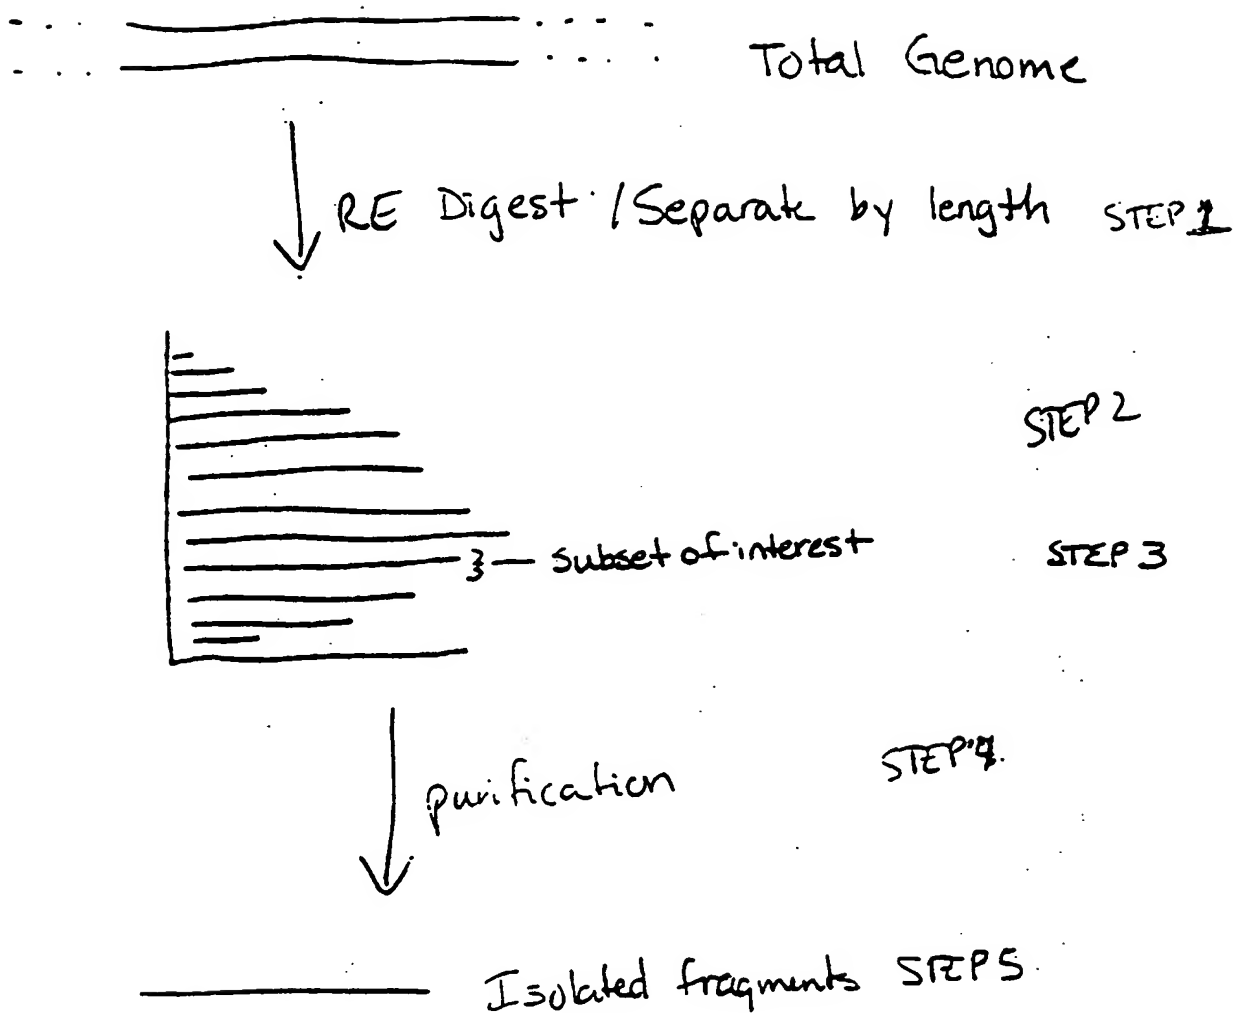 Total Genome
RE Digest / Separate by length STEP 1
STEP 2
subset of interest STEP 3
purification STEP 4.
Isolated fragments STEP 5